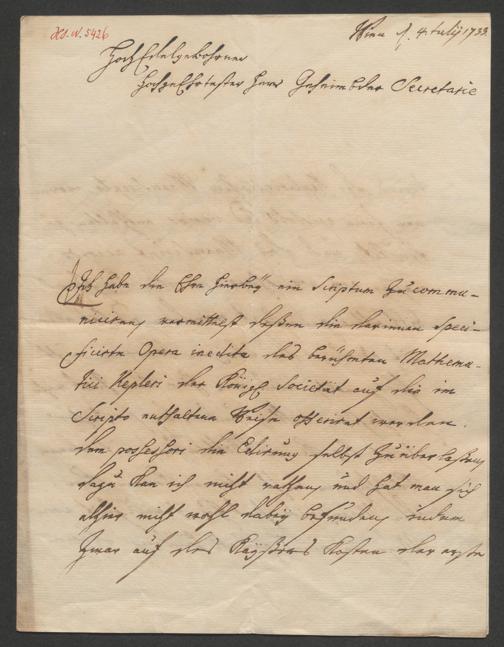 Hs. N. 5426
Wien d. 4. Julij 1733
HochEdelgebohrner
Hochgeehrtester Herr Geheimbder Secretarie
Ich habe die Ehre hierbeÿ ein Scriptum zu commu-
niciren, vermittelst deßen die darinnen speci-
ficirte Opera inedita des berühmten Mathema-
tici Kepleri der Königl Societät auf die im
Scripto enthaltene Weise offerirt werden.
Dem possessori die Edirung selbst zu überlaßen,
dazu kan ich nicht rathen, und hat man sich
alhier nicht wohl dabeÿ befunden, indem
zwar auf des Kaÿsers Kosten der erste